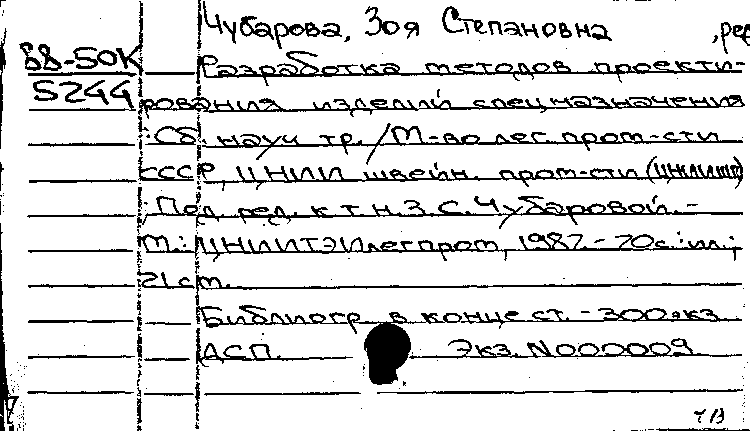 Чубарова, Зоя Степановна ,ред
88-50К Разработка методов проекти-
5244 рования изделий спецназначения
: Сб. науч тр. / М-во лег. пром-сти
СССР, ЦНИИ швейн. пром-сти (ЦНИИШП)
; Под ред. к.т.н. З.С. Чубаровой. -
М.: ЦНИИТЭИлегпром, 1987. - 70с. : ил.;
21 см.
Библиогр. в конце ст. - 300 экз.
ДСП. Экз. N000009